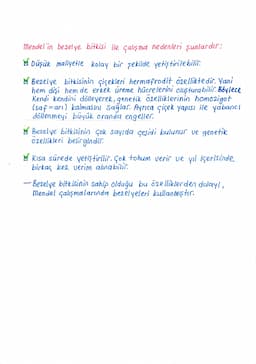 Mendel'in bezelye bitkisi ile çalışma nedenleri şunlardır:
Düşük maliyetle kolay bir şekilde yetiştirilebilir.
Bezelye bitkisinin çiçekleri hermafrodit özelliktedir. Yani
hem dişi hem de erkek üreme hücrelerini oluşturabilir. Böylece
kendi kendini dölleyerek, genetik özelliklerinin homozigot
(saf=arı) kalmasını sağlar. Ayrıca çiçek yapısı ile yabancı
döllenmeyi büyük oranda engeller.
Bezelye bitkisinin çok sayıda çeşidi bulunur ve genetik
özellikleri belirgindir.
Kısa sürede yetiştirilir. Çok tohum verir ve yıl içerisinde,
birkaç kez verim alınabilir.
— Bezelye bitkisinin sahip olduğu bu özelliklerden dolayı,
Mendel çalışmalarında bezelyeleri kullanmıştır.